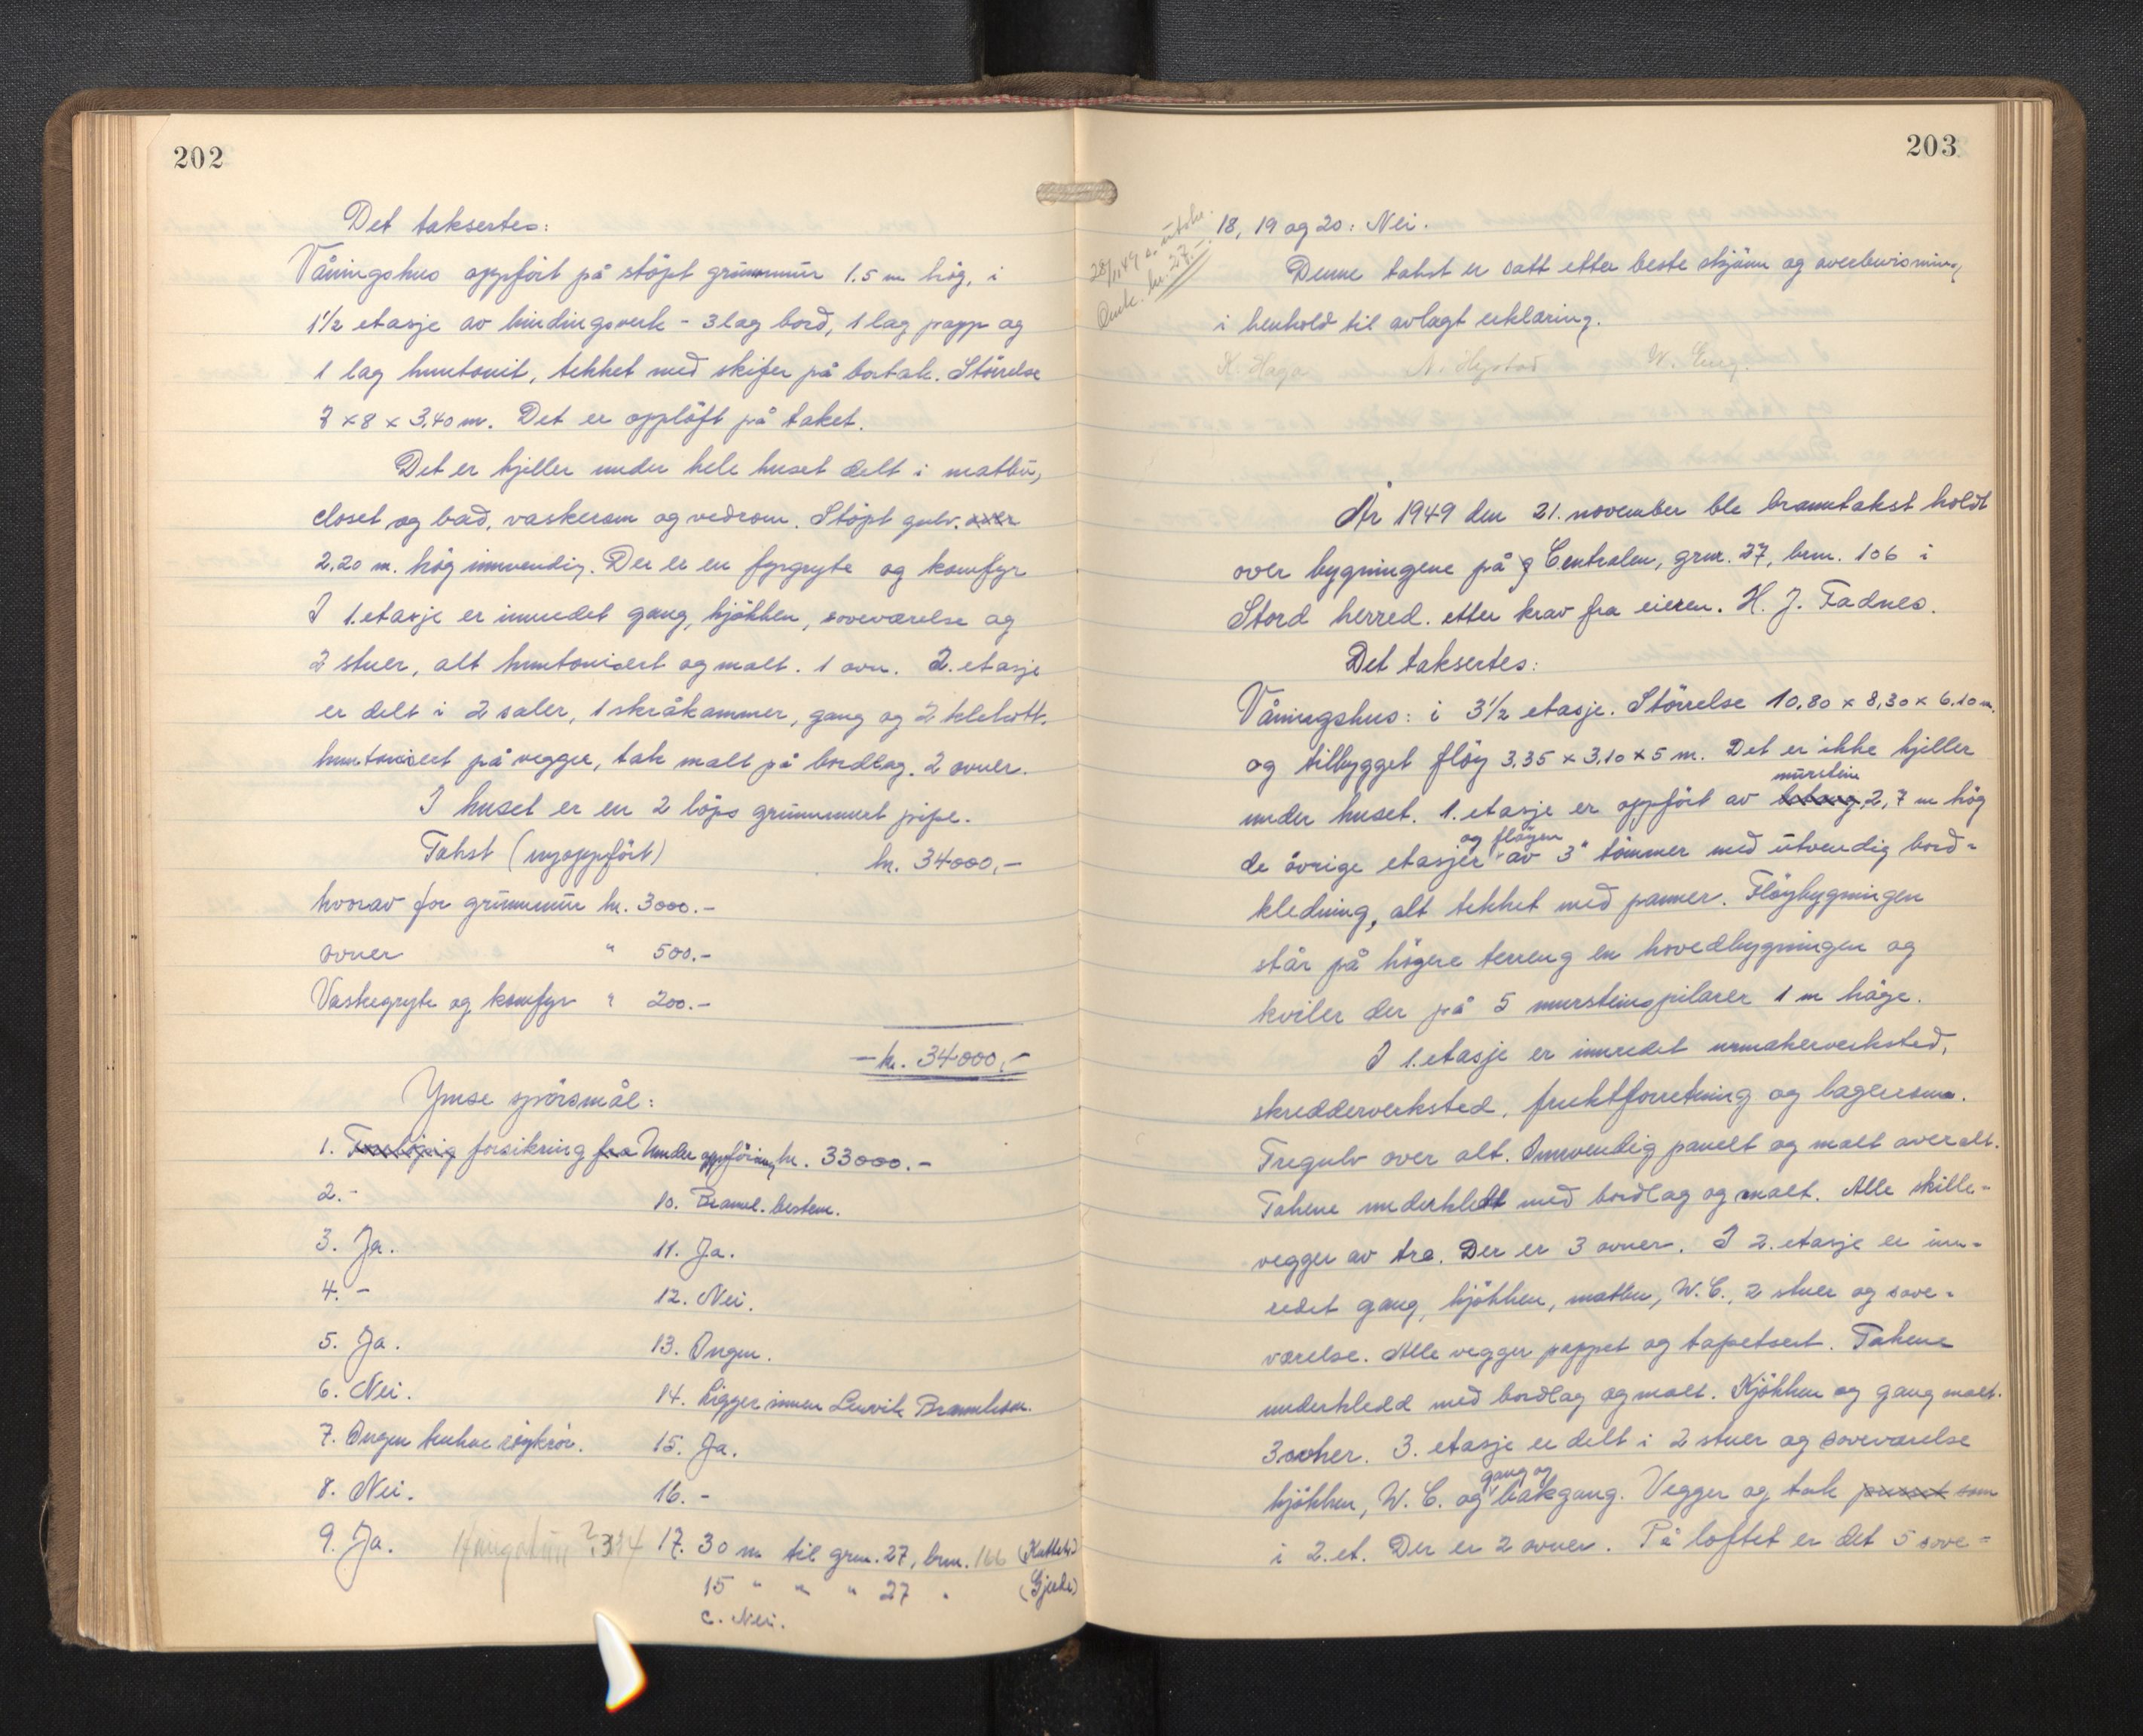 202
Det taksertes:
Våningshus oppført på støpt grunnmur 1.5 m høg, i
1 1/2 etasje av bindingsverk - 3 lag bord, 1 lag papp og
1 lag huntonit, tekket med skifer på bortak. Størrelse
7 x 8 x 3.40 m. Det er oppløft på taket.
Det er kjeller under hele huset delt i matbu,
closet og bad, vaskerom og vedrom. Støpt gulv. over
2,20 m. høg innvendig. Der er en fyrgryte og komfyr
I 1. etasje er innredet gang, kjøkken, soveværelse og
2 stuer, alt huntonisert og malt. 1 ovn. 2. etasje
er delt i 2 saler, 1 skråkammer, gang og 2 klekott.
huntonisert på vegger, tak malt på bordlag. 2 ovner.
I huset er en 2 løps grunnmurt pipe.
Takst (nyoppført) kr. 34000,-
hvorav for grunnmur kr. 3000.-
ovner " 500.-
Vaskegryte og komfyr " 200.-
kr. 34000,-
Ymse spørsmål:
1. Foreløpig forsikring fra Under oppføring kr. 33000.-
2. -
3. Ja.
4. -
5. Ja.
6. Nei.
7. Ingen tenkne røykrør.
8. Nei.
9. Ja.
10. Brannl. bestem.
11. Ja.
12. Nei.
13. Ingen.
14. Ligger innen Lervik Brannkom.
15. Ja.
16. -
17. 30 m til grnr. 27, brnr. 166
15 " " " 27 "
c. Nei.
203
28/11 49 s. utskr.
kr. 27.-
18, 19 og 20: Nei.
Denne takst er satt etter beste skjønn og overbevisning,
i henhold til avlagt erklæring.
K. Haga N. Hystad
År 1949 den 21. november ble branntakst holdt
over bygningene på Centralen, grnr. 27, brnr. 106 i
Stord herred. etter krav fra eieren. H. J. Tadnes.
Det taksertes:
Våningshus: i 3 1/2 etasje. Størrelse 10.80 x 8,30 x 6.10 m.
og tilbygget fløy 3.35 x 3.10 x 5 m. Det er ikke kjeller
murstein
under huset. 1. etasje er oppført av betong, 2,7 m høg
og fløyen
de øvrige etasjer av 3" tømmer med utvendig bord-
kledning, alt tekket med panner. Fløybygningen
står på høgere terreng en hovedbygningen og
kviler der på 5 mursteinspilarer 1 m høge.
I 1. etasje er innredet urmakerverksted,
skredderverksted, fruktforretning og lagerrom.
Tregulv over alt. Innvendig panelt og malt overalt.
Takene underkledt med bordlag og malt. Alle skille-
vegger av tre. Der er 3 ovner. I 2. etasje er inn-
redet gang, kjøkken, matbu, W.C., 2 stuer og sove-
værelse. Alle vegger pappet og tapetsert. Takene
underkledd med bordlag og malt. Kjøkken og gang malt.
3 ovner. 3. etasje er delt i 2 stuer og soveværelse
gang og
kjøkken, W.C. og bakgang. Vegger og tak som
i 2. et. Der er 2 ovner. På loftet er det 5 sove-